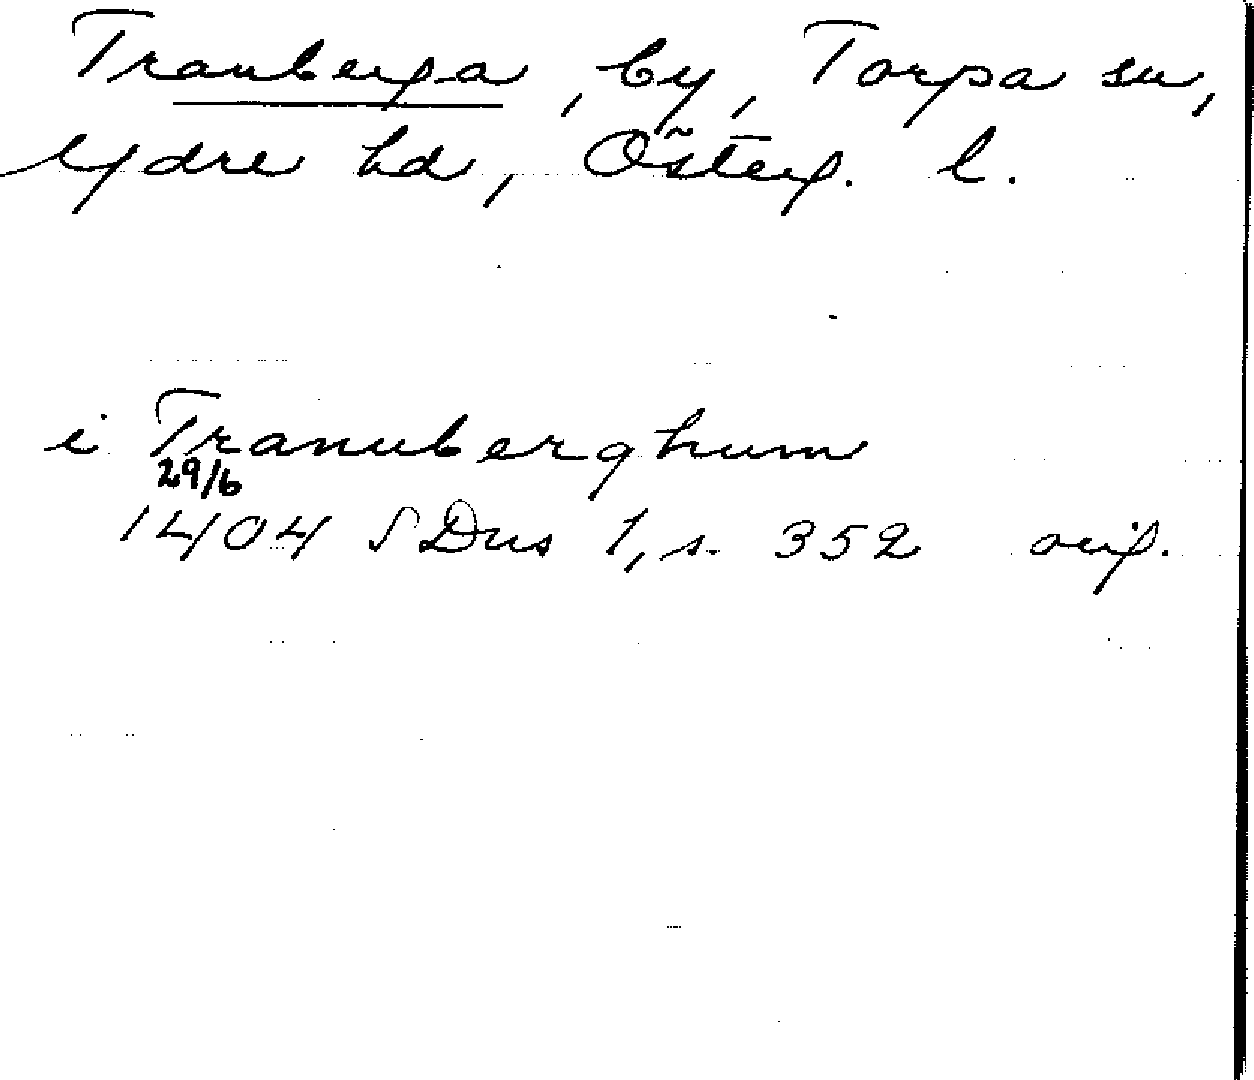 Tranberga, by, Torpa sn,
Ydre hd, Österg. l.
i Tranuberghum
29/6
1404 SDns 1, s. 352 orig.